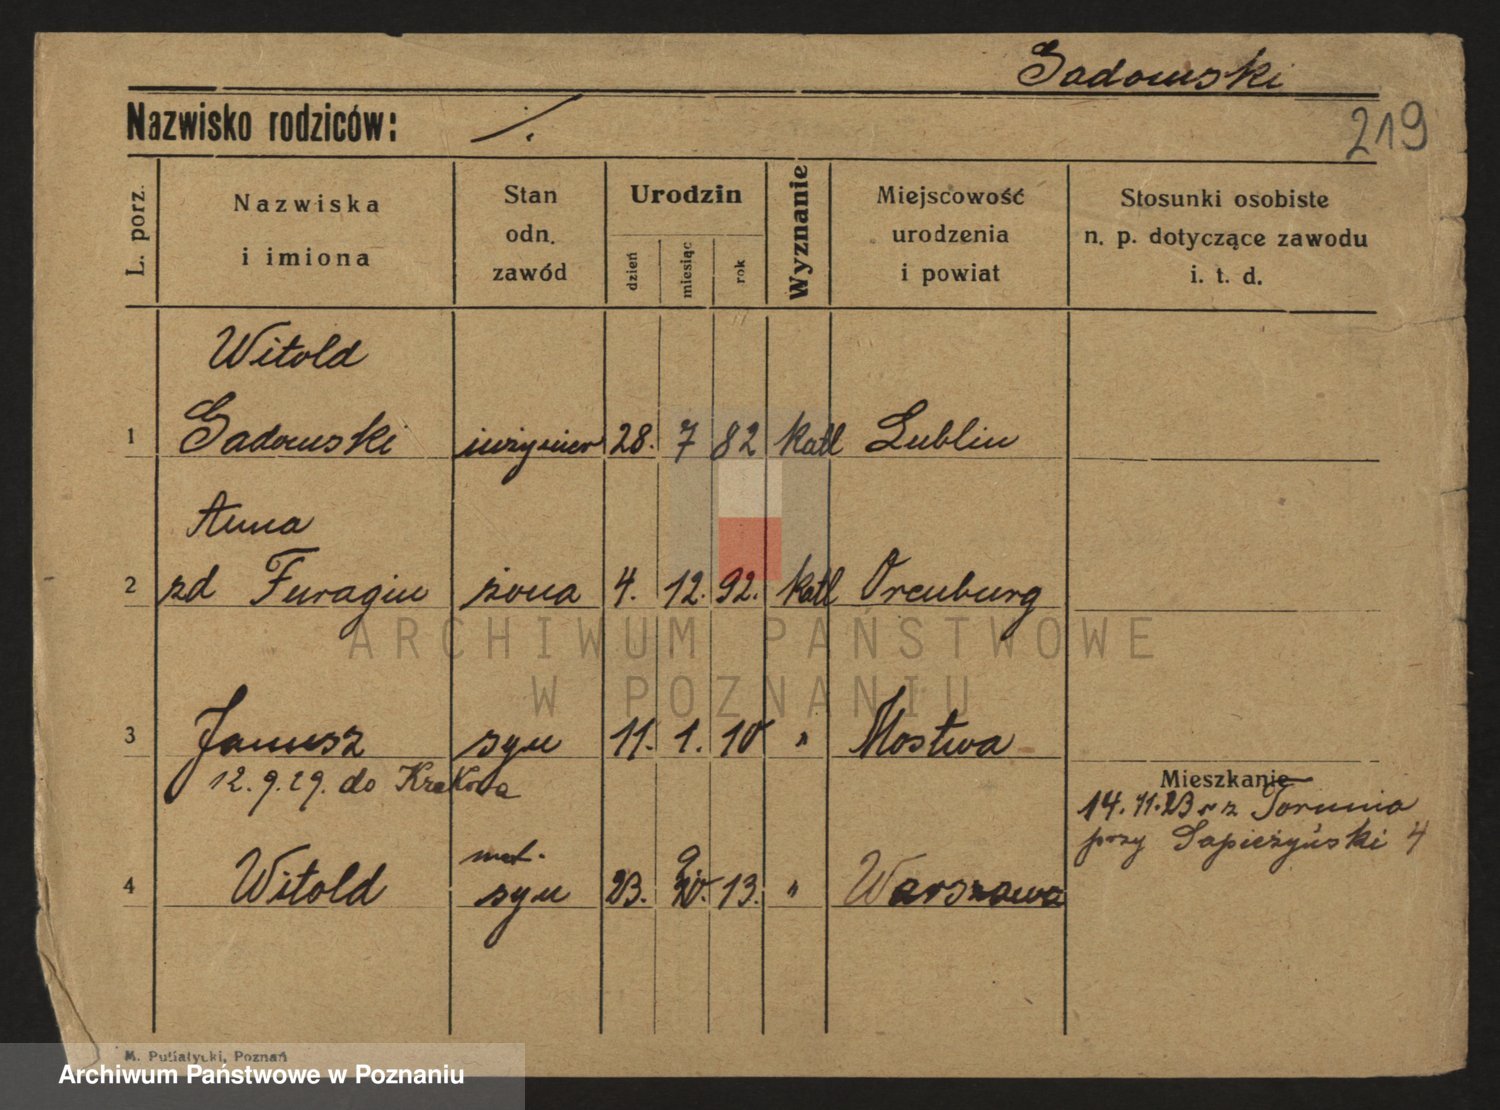 Sadowski
Nazwisko rodziców: ./.
219
L. porz.
Nazwiska
i imiona
Stan
odn.
zawód
Urodzin
dzień
miesiąc
rok
Wyznanie
Miejscowość
urodzenia
i powiat
Stosunki osobiste
n. p. dotyczące zawodu
i. t. d.
Witold
1 Sadowski inżynier 28. 7 82 katl Lublin
Anna
2 zd Furagin żona 4. 12. 92. katl Orenburg
ARCHIWUM PAŃSTWOWE
W POZNANIU
3 Janusz syn 11. 1. 10 " Mostwa
12.9.29. do Krakowa
Mieszkanie
14.11.23 z Torunia
przy Sapieżyński 4
4 Witold syn 23. 13. " Warszawa
M. Putiatycki, Poznań
Archiwum Państwowe w Poznaniu